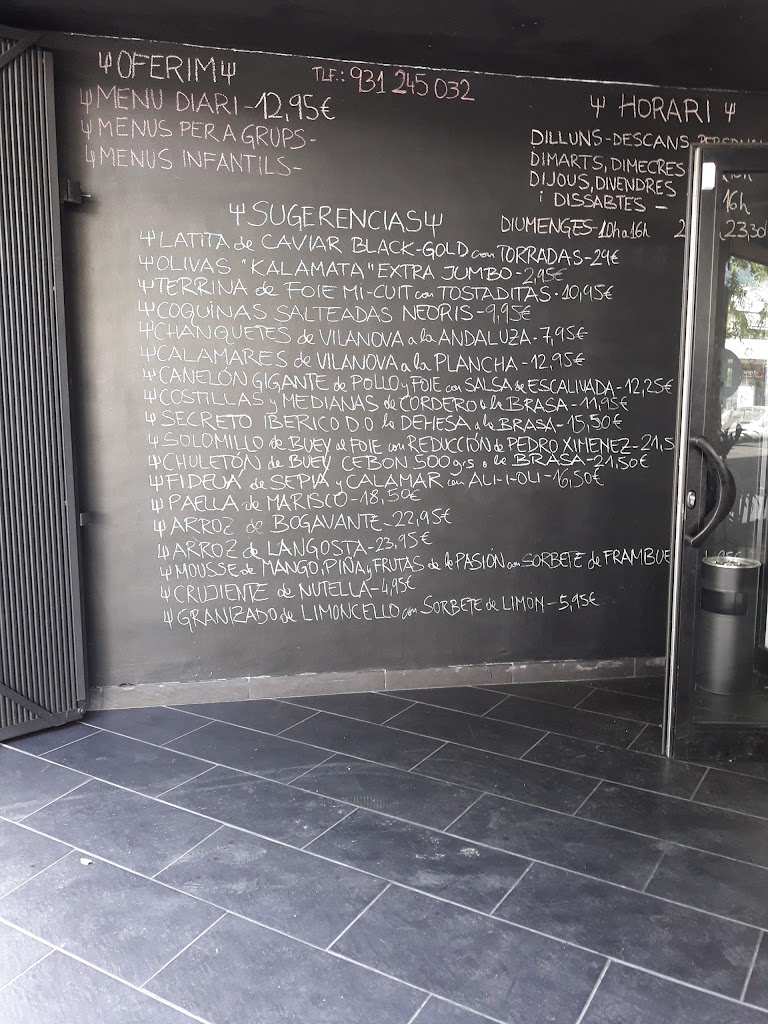 Ψ OFERIM Ψ
TLF.: 931 245 032
Ψ MENU DIARI - 12,95€
Ψ MENUS PER A GRUPS -
Ψ MENUS INFANTILS -
Ψ HORARI Ψ
DILLUNS - DESCANS PERSONAL
DIMARTS, DIMECRES
DIJOUS, DIVENDRES
i DISSABTES - 16h
DIUMENGES - 10h a 16h 23,30
Ψ SUGERENCIAS Ψ
Ψ LATITA de CAVIAR BLACK-GOLD con TORRADAS - 29€
Ψ OLIVAS "KALAMATA" EXTRA JUMBO - 2,95€
Ψ TERRINA de FOIE MI-CUIT con TOSTADITAS - 10,95€
Ψ COQUINAS SALTEADAS NEORIS - 9,95€
Ψ CHANQUETES de VILANOVA a la ANDALUZA - 7,95€
Ψ CALAMARES de VILANOVA a la PLANCHA - 12,95€
Ψ CANELÓN GIGANTE de POLLO y FOIE con SALSA de ESCALIVADA - 12,25€
Ψ COSTILLAS y MEDIANAS de CORDERO a la BRASA - 11,95€
Ψ SECRETO IBERICO D.O la DEHESA a la BRASA - 15,50€
Ψ SOLOMILLO de BUEY al FOIE con REDUCCIÓN de PEDRO XIMENEZ - 21,5
Ψ CHULETÓN de BUEY CEBON 500 grs a la BRASA - 21,50€
Ψ FIDEUA de SEPIA y CALAMAR con ALI-I-OLI - 16,50€
Ψ PAELLA de MARISCO - 18,50€
Ψ ARROZ de BOGAVANTE - 22,95€
Ψ ARROZ de LANGOSTA - 23,95€
Ψ MOUSSE de MANGO, PIÑA y FRUTAS de la PASIÓN con SORBETE de FRAMBUE
Ψ CRUJIENTE de NUTELLA - 4,95€
Ψ GRANIZADO de LIMONCELLO con SORBETE de LIMÓN - 5,95€